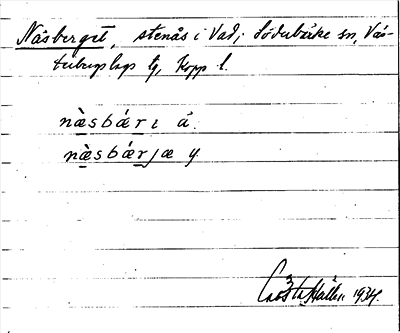 Näsberget, stenås i Vad, Söderbärke sn, Väs-
terbergslags tg, Kopp. l.
næsbǽrı ä.
næsbǽrjæ y.
Gösta Hallen 1934.